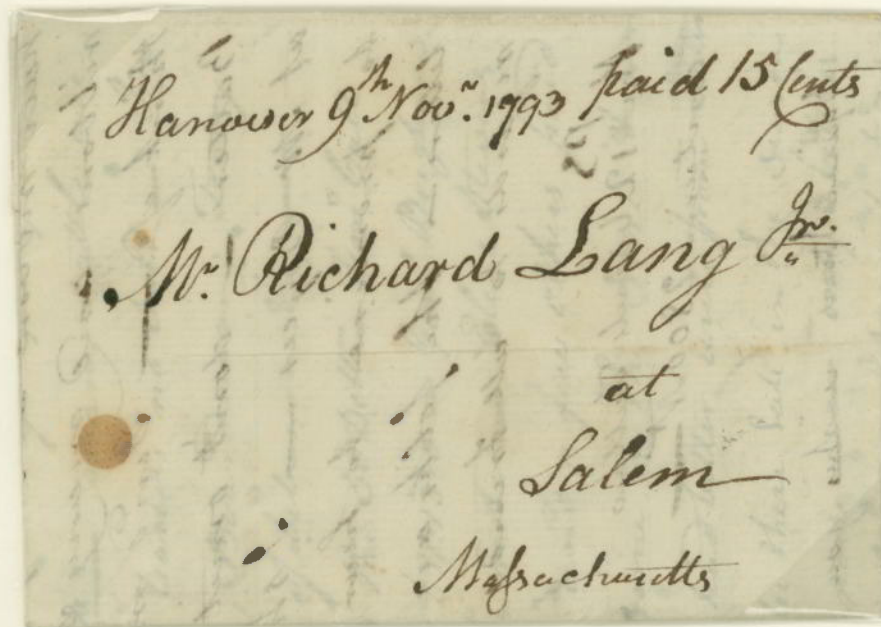 Hanover 9th Novr. 1793 paid 15 Cents
Mr. Richard Lang Jr.
at
Salem
Massachusetts